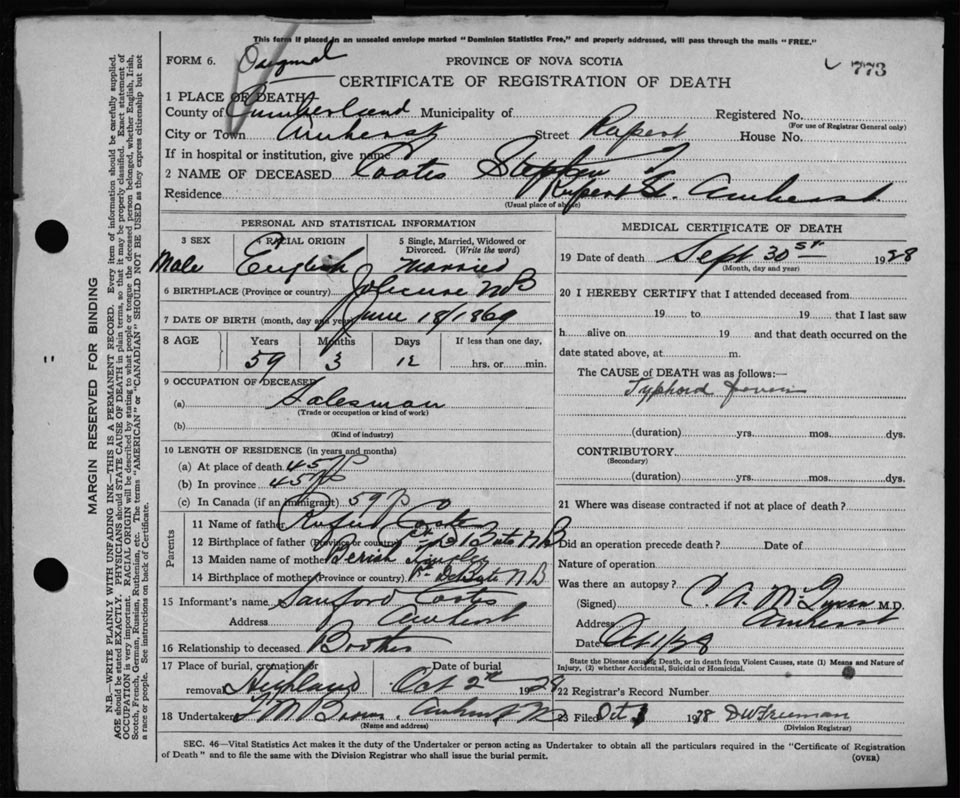 This form if placed in an unsealed envelope marked "Dominion Statistics Free," and properly addressed, will pass through the mails "FREE."
FORM 6. Original PROVINCE OF NOVA SCOTIA 773
CERTIFICATE OF REGISTRATION OF DEATH
1 PLACE OF DEATH
County of Cumberland Municipality of Registered No.
(For use of Registrar General only)
City or Town Amherst Street Rupert House No.
If in hospital or institution, give name
2 NAME OF DECEASED Coates Stephen
Residence Rupert St. Amherst
(Usual place of abode)
PERSONAL AND STATISTICAL INFORMATION
3 SEX 4 RACIAL ORIGIN 5 Single, Married, Widowed or Divorced. (Write the word)
Male English Married
6 BIRTHPLACE (Province or country) Jolicure NB
7 DATE OF BIRTH (month, day and year) June 18/1869
8 AGE Years Months Days If less than one day,
59 3 12 hrs. or min.
9 OCCUPATION OF DECEASED
(a) Salesman
(Trade or occupation or kind of work)
(b)
(Kind of industry)
10 LENGTH OF RESIDENCE (in years and months)
(a) At place of death 45
(b) In province 45
(c) In Canada (if an immigrant) 59
Parents
11 Name of father Rufus Coates
12 Birthplace of father (Province or country) Pt De Bute NB
13 Maiden name of mother
14 Birthplace of mother (Province or country) Pt De Bute NB
15 Informant's name Sanford Coates
Address Amherst
16 Relationship to deceased Brother
17 Place of burial, cremation or Date of burial
removal Highland Oct 2nd 1928
18 Undertaker Amherst
(Name and address)
MEDICAL CERTIFICATE OF DEATH
19 Date of death Sept 30 1928
(Month, day and year)
20 I HEREBY CERTIFY that I attended deceased from
19 to 19 that I last saw
h alive on 19 and that death occurred on the
date stated above, at m.
The CAUSE of DEATH was as follows:—
Typhoid
(duration) yrs. mos. dys.
CONTRIBUTORY
(Secondary)
(duration) yrs. mos. dys.
21 Where was disease contracted if not at place of death?
Did an operation precede death? Date of
Nature of operation
Was there an autopsy?
(Signed) C. A. M.D.
Address Amherst
Date Oct 1/28
State the Disease causing Death, or in death from Violent Causes, state (1) Means and Nature of Injury, (2) whether Accidental, Suicidal or Homicidal.
22 Registrar's Record Number
23 Filed Oct 1928 DW Freeman
(Division Registrar)
SEC. 46—Vital Statistics Act makes it the duty of the Undertaker or person acting as Undertaker to obtain all the particulars required in the "Certificate of Registration
of Death" and to file the same with the Division Registrar who shall issue the burial permit. (OVER)
MARGIN RESERVED FOR BINDING
N.B.—WRITE PLAINLY WITH UNFADING INK—THIS IS A PERMANENT RECORD. Every item of information should be carefully supplied.
AGE should be stated EXACTLY. PHYSICIANS should STATE CAUSE OF DEATH in plain terms, so that it may be properly classified. Exact statement of
OCCUPATION is very important. RACIAL ORIGIN will be described by stating to what people or tongue the deceased person belonged, whether English, Irish,
Scotch, French, German, Russian, Ruthenian, etc. The terms "AMERICAN" or "CANADIAN" SHOULD NOT BE USED as they express citizenship but not
a race or people. See instructions on back of Certificate.